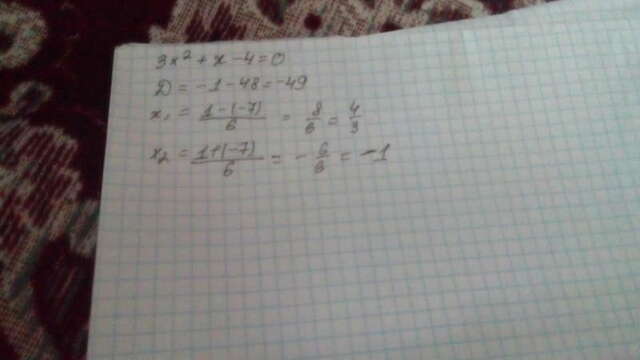 3x² + x - 4 = 0
D = -1 - 48 = -49
x₁ = (1-(-7))/6 = 8/6 = 4/3
x₂ = (1+(-7))/6 = -6/6 = -1